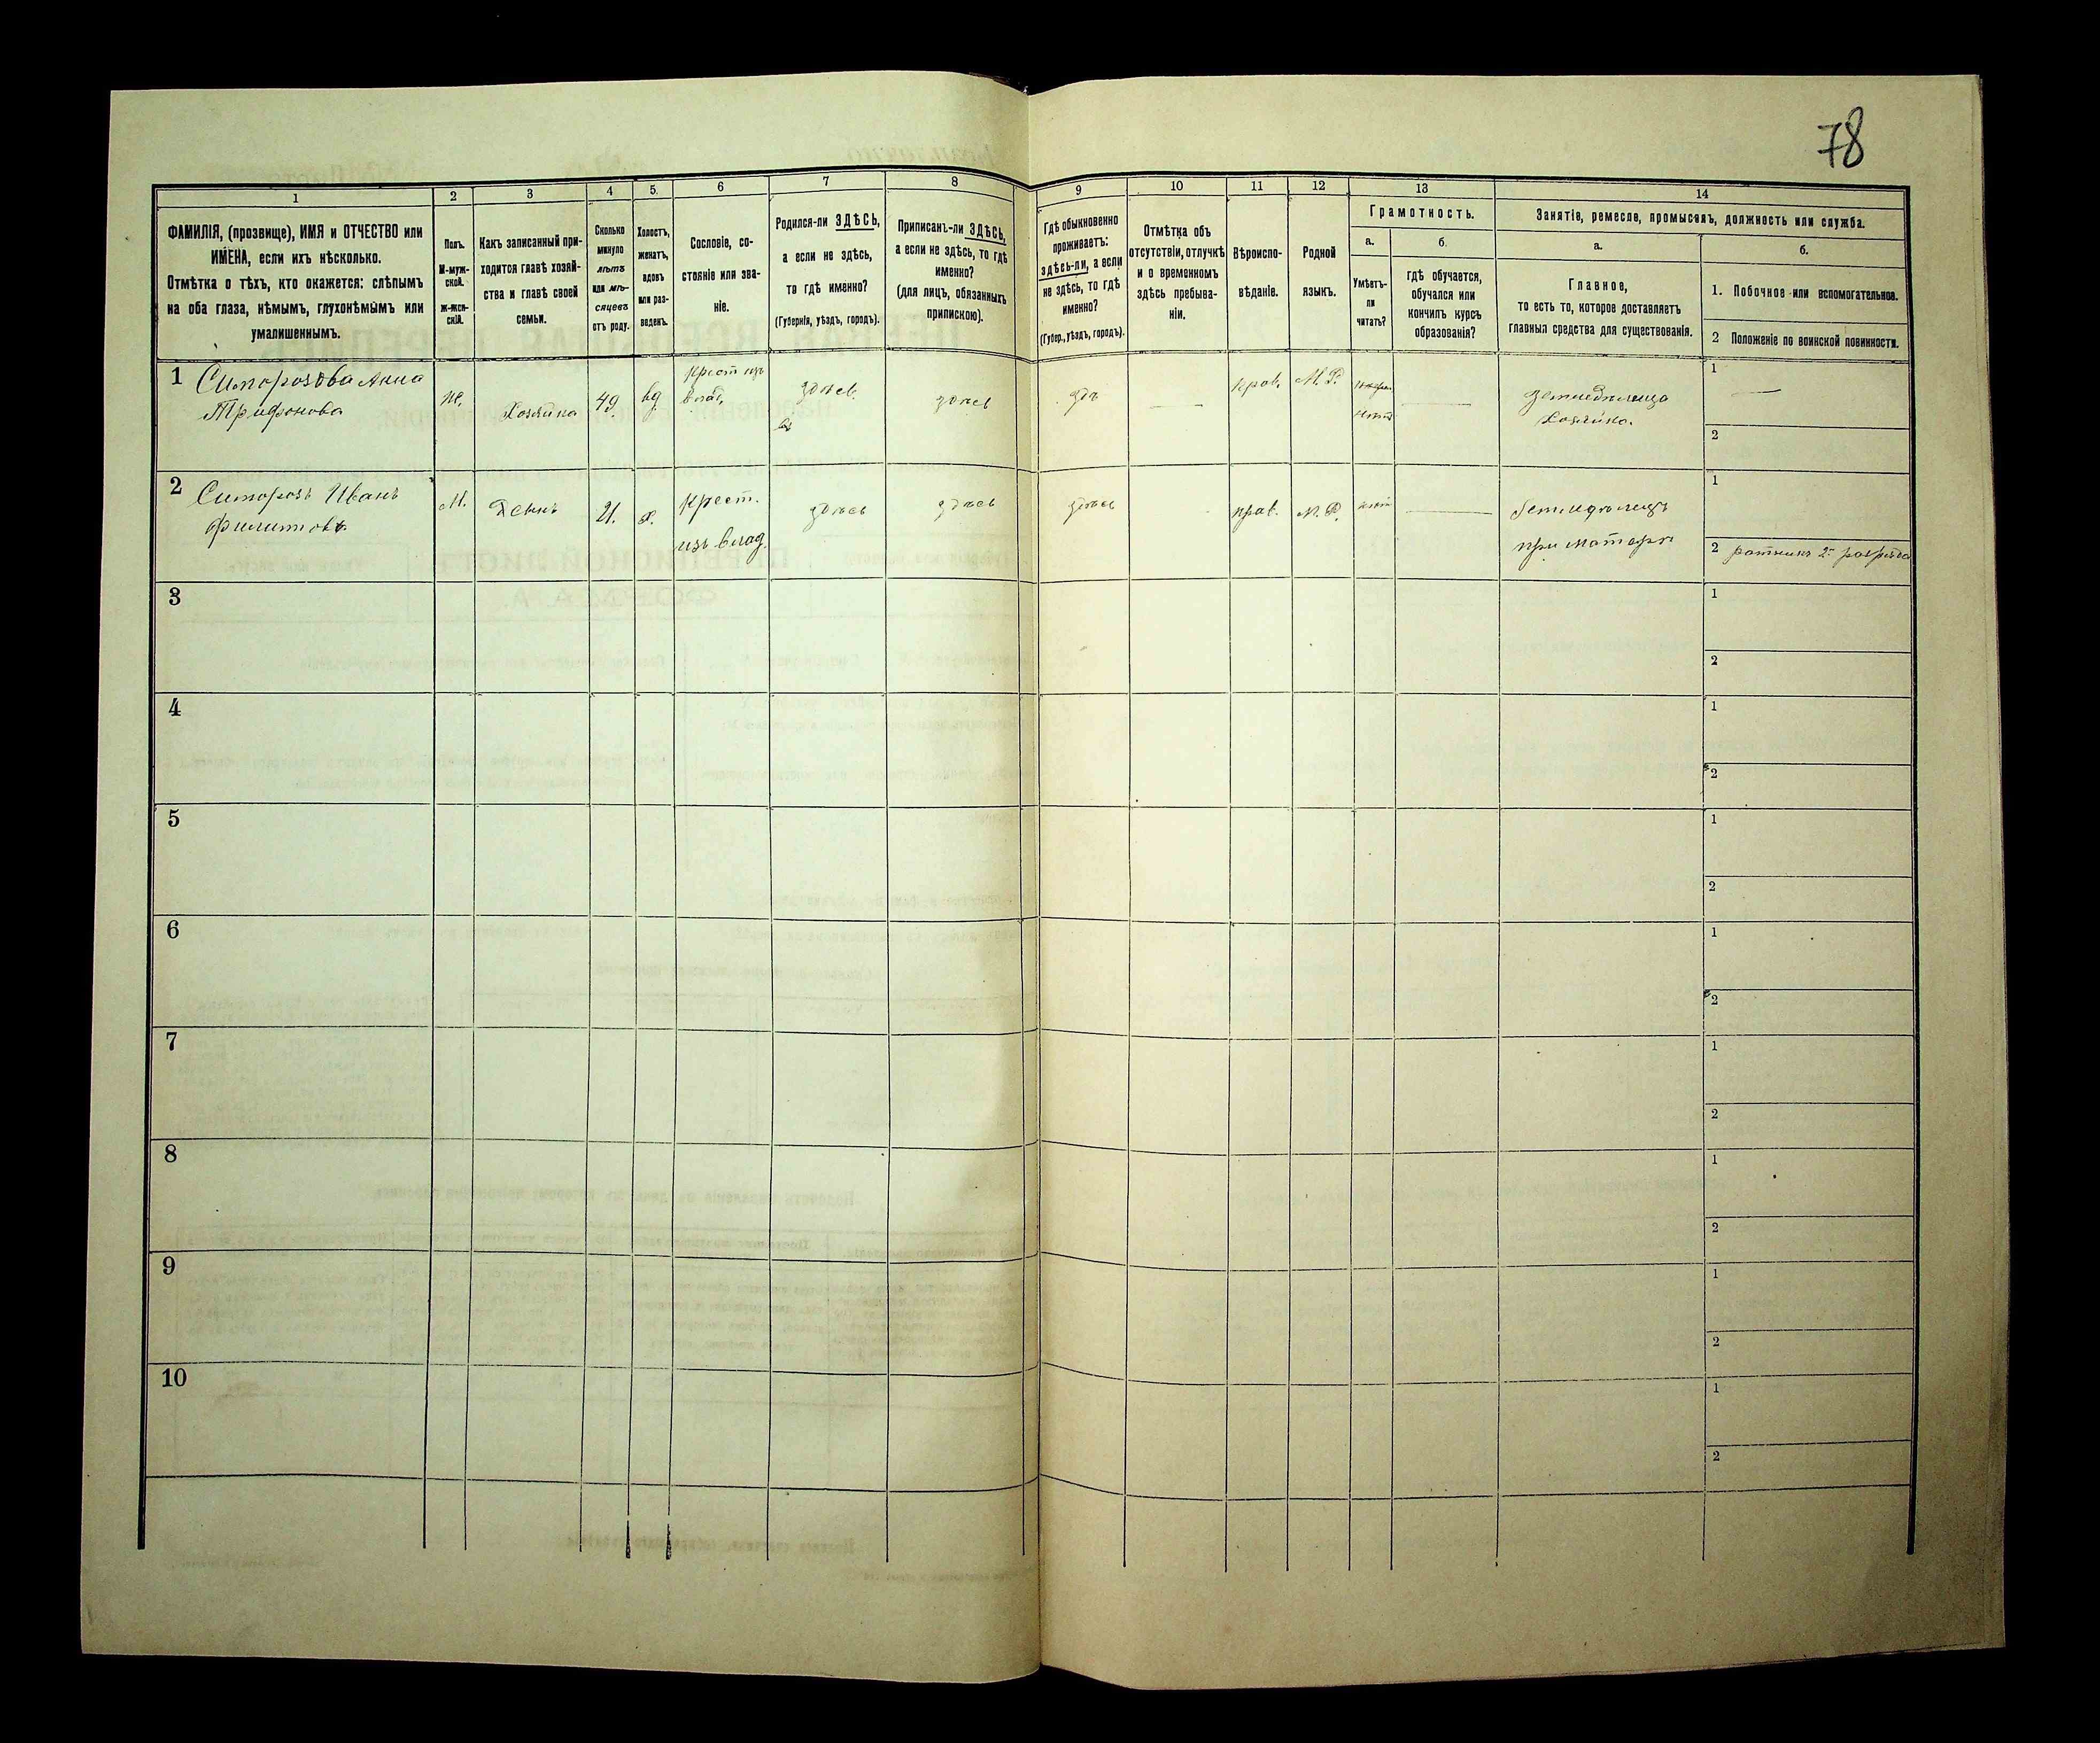 78
1
2
3
4
5.
6
7
8
9
10
11
12
13
14
ФАМИЛІЯ, (прозвище), ИМЯ и ОТЧЕСТВО или
ИМЕНА, если ихъ нѣсколько.
Отмѣтка о тѣхъ, кто окажется: слѣпымъ
на оба глаза, нѣмымъ, глухонѣмымъ или
умалишеннымъ.
Полъ.
М-муж-
ской.
ж-жен-
скій.
Какъ записанный при-
ходится главѣ хозяй-
ства и главѣ своей
семьи.
Сколько
минуло
лѣтъ
или мѣ-
сяцевъ
отъ роду.
Холостъ,
женатъ,
вдовъ
или раз-
веденъ.
Сословіе, со-
стояніе или зва-
ніе.
Родился-ли ЗДѢСЬ,
а если не здѣсь,
то гдѣ именно?
(Губернія, уѣздъ, городъ).
Приписанъ-ли ЗДѢСЬ,
а если не здѣсь, то гдѣ
именно?
(для лицъ, обязанныхъ
припискою).
Гдѣ обыкновенно
проживаетъ:
здѣсь-ли, а если
не здѣсь, то гдѣ
именно?
(Губер., уѣздъ, городъ).
Отмѣтка объ
отсутствіи, отлучкѣ
и о временномъ
здѣсь пребыва-
ніи.
Вѣроиспо-
вѣданіе.
Родной
языкъ.
Грамотность.
а.
Умѣетъ-
ли
читать?
б.
гдѣ обучается,
обучался или
кончилъ курсъ
образованія?
Занятіе, ремесло, промыселъ, должность или служба.
а.
Главное,
то есть то, которое доставляетъ
главныя средства для существованія.
б.
1. Побочное или вспомогательное.
2 Положеніе по воинской повинности.
1
Ситорозова Анна
Трифонова
Ж.
Хозяйка
49
вд
крест изъ
влад.
здѣсь
здѣсь
зд
прав.
М. Р.
нѣтъ
земледѣлица
Хозяйка.
1
2
2
Ситорозъ Иванъ
Филиповъ
М.
Сынъ
21.
х.
крест.
изъ влад.
здѣсь
здѣсь
здѣсь
прав.
М. Р.
нѣтъ
Земледѣлецъ
при матери
1
2 ратникъ 2 разряда
3
1
2
4
1
2
5
1
2
6
1
2
7
1
2
8
1
2
9
1
2
10
1
2